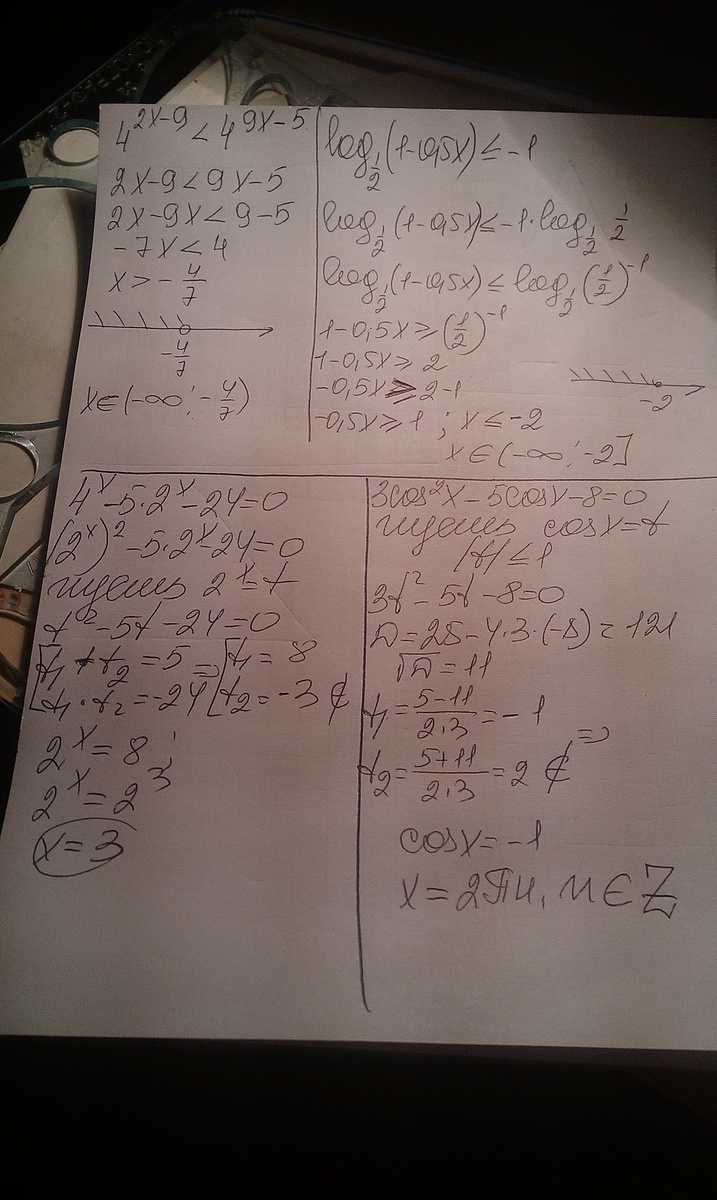 4^{2x-9} < 4^{9x-5}
2x-9<9x-5
2x-9x<9-5
-7x<4
x>-\frac{4}{7}
-\frac{4}{7}
x∈(-∞; -\frac{4}{7})
log_{\frac{1}{2}}(1-0,5x) ≤ -1
log_{\frac{1}{2}}(1-0,5x) ≤ -1·log_{\frac{1}{2}} \frac{1}{2}
log_{\frac{1}{2}}(1-0,5x) ≤ log_{\frac{1}{2}}(\frac{1}{2})^{-1}
1-0,5x ≥ (\frac{1}{2})^{-1}
1-0,5x ≥ 2
-0,5x ≥ 2-1
-0,5x ≥ 1 ; x ≤ -2
-2
x∈(-∞; -2]
4^x-5·2^x-24=0
(2^x)^2-5·2^x-24=0
пусть 2^x=t
t^2-5t-24=0
[t_1+t_2=5 => [t_1=8
[t_1·t_2=-24 [t_2=-3 ∉
2^x=8;
2^x=2^3
x=3
3cos^2x-5cosx-8=0
пусть cosx=t
|t|≤1
3t^2-5t-8=0
D=25-4·3·(-8)=121
√D=11
t_1=\frac{5-11}{2·3}=-1
=>
t_2=\frac{5+11}{2·3}=2 ∉
cosx=-1
x=2πn, n∈Z